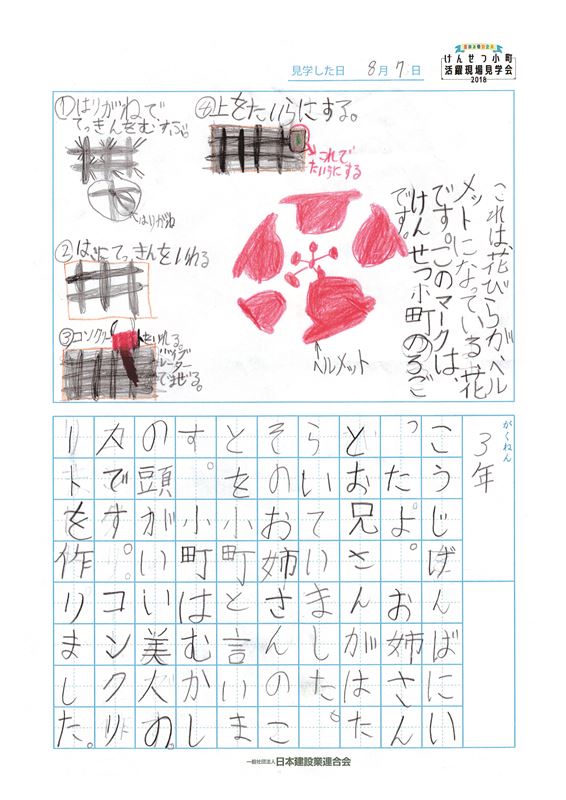 見学した日 8月7日
けんせつ小町
活躍現場見学会
2018
①はりがねで
てっきんをむすぶ。
はりがね
④上をたいらにする。
これで
たいらにする
②はこにてっきんをいれる
③コンクリートをいれる。
バイブ
レーター
でまぜる。
これは、花びらがヘル
メットになっている、花
です。このマークは、
けんせつ小町のろご
です。
ヘルメット
がくねん
3年
こうじげんばにい
ったよ。 お姉さん
とお兄さんがはた
らいていました。
そのお姉さんのこ
とを小町と言いま
す。小町はむかし
の頭がいい美人の
人です。コンクリ
ートを作りました。
一般社団法人 日本建設業連合会